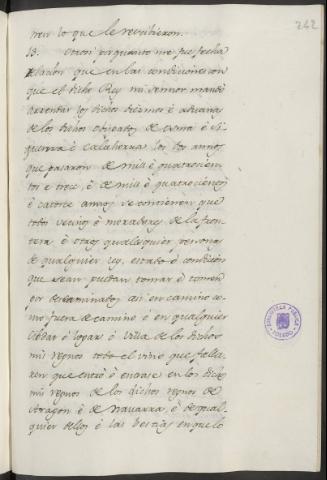 242
tren lo que le recibieron.
13. Otrosi por quanto me fue fecha
relacion que en las condiciones con
que el dicho Rey mi Señor mandó
arrendar los dichos diezmos é aduanas
de los dichos obispados de Osma é Si-
guenza é Calahorra los dos annos
que pasaron de mil é quatrocien-
tos e trece, é de mil é quatrocientos
é catorce annos, se contienen que
todos vecinos é moradores de la fron-
tera é otras qualesquier personas
de qualquier ley, estado é condición
que sean puedan tomar é tomen
por descaminados asi en camino co-
mo fuera de camino é en qualquier
Cibdat é logar é Villa de los dichos
mis regnos todo el vino que falla-
ren que entró é entrase en los dichos
mis regnos de los dichos regnos de
Aragon é de Navarra, é de qual-
quier dellos é las bestias en que lo
BIBLIOTECA PUBLICA
TOLEDO